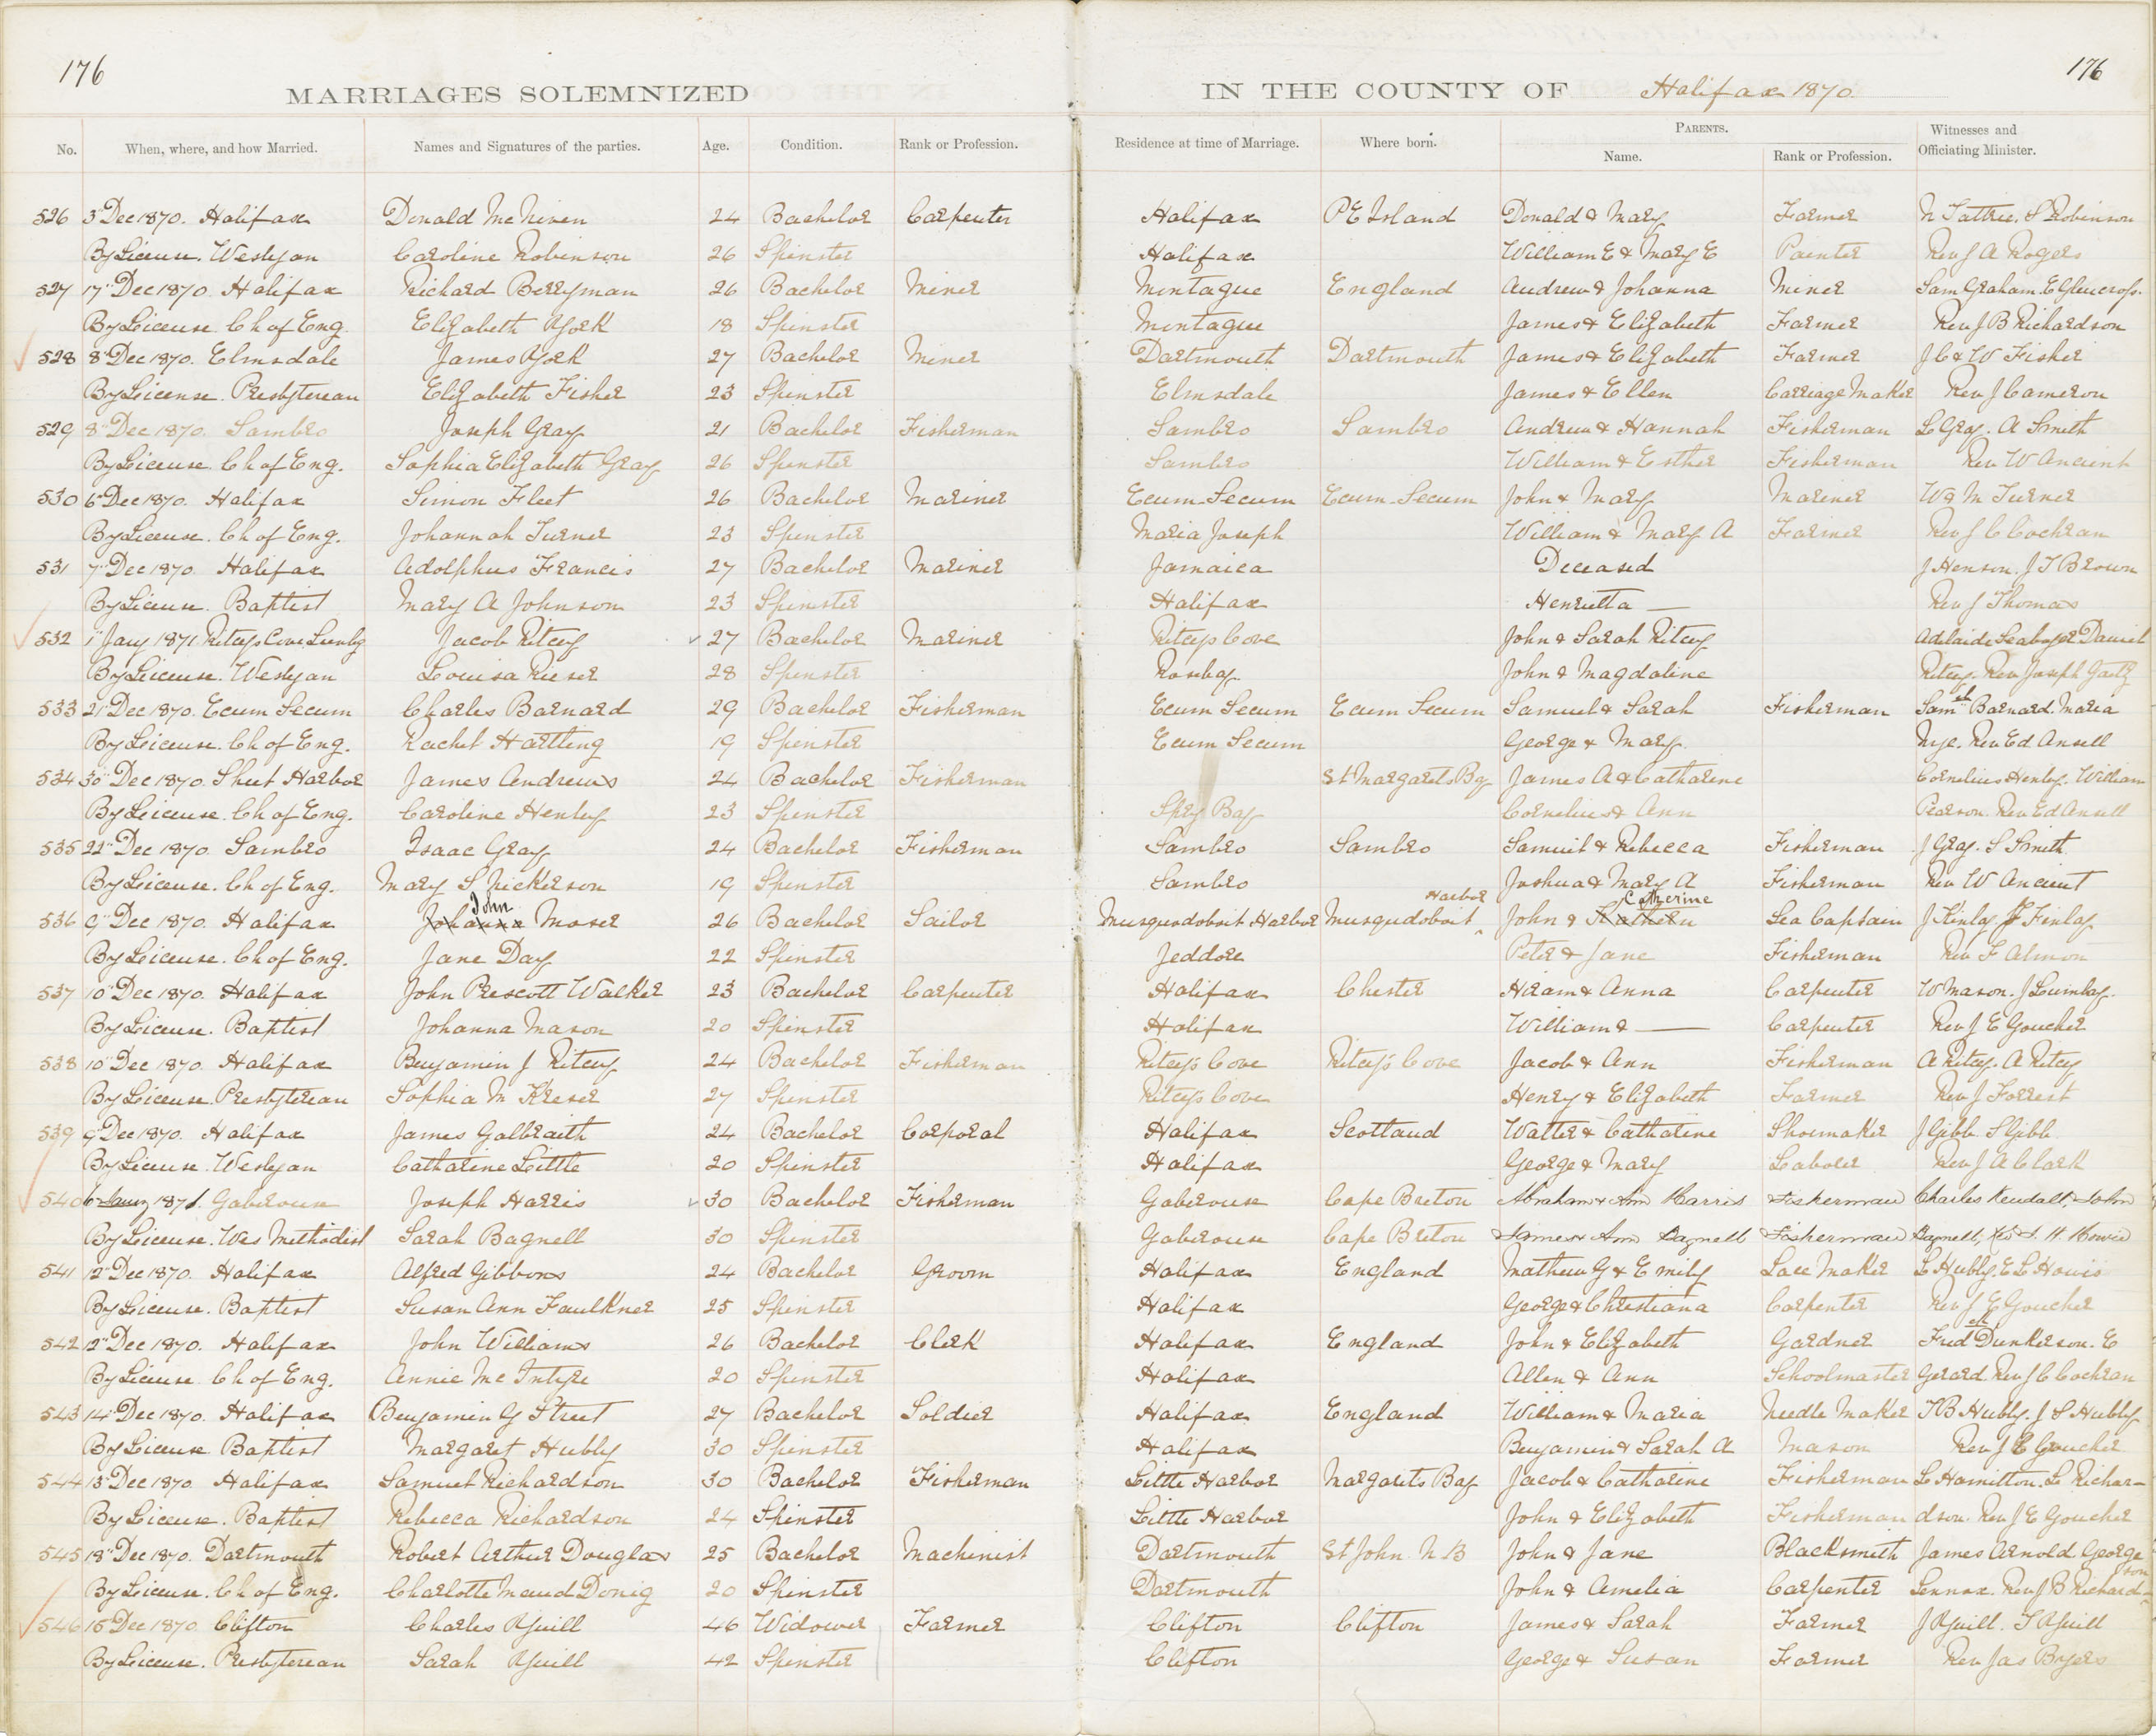 176
176
MARRIAGES SOLEMNIZED IN THE COUNTY OF Halifax 1870.
No. When, where, and how Married. Names and Signatures of the parties. Age. Condition. Rank or Profession. Residence at time of Marriage. Where born. PARENTS. Name. Rank or Profession. Witnesses and Officiating Minister.
526 3" Dec 1870. Halifax Donald McNiven 24 Bachelor Carpenter Halifax P E Island Donald & Mary Farmer N Tattrie. S Robinson
By License. Weslyan Caroline Robinson 26 Spinster Halifax William E & Mary E Painter Rev J A Rogers
527 17" Dec 1870. Halifax Richard Berryman 26 Bachelor Miner Montague England Andrew & Johanna Miner Sam Graham. E Glencross.
By License. Ch of Eng. Elizabeth York 18 Spinster Montague James & Elizabeth Farmer Rev J B Richardson
528 8" Dec 1870. Elmsdale James York 27 Bachelor Miner Dartmouth Dartmouth James & Elizabeth Farmer J C & W Fisher
By License. Presbyterean Elizabeth Fisher 23 Spinster Elmsdale James & Ellen Carriage Maker Rev J Cameron
529 8" Dec 1870. Sambro Joseph Gray 21 Bachelor Fisherman Sambro Sambro Andrew & Hannah Fisherman L Gray. A Smith
By License. Ch of Eng. Sophia Elizabeth Gray 26 Spinster Sambro William & Esther Fisherman Rev W Ancient
530 6" Dec 1870. Halifax Simon Fleet 26 Bachelor Mariner Ecum-Secum Ecum-Secum John & Mary Mariner Wm M Turner
By License. Ch of Eng. Johannah Turner 23 Spinster Maria Joseph William & Mary A Farmer Rev J C Cochran
531 7" Dec 1870 Halifax Adolphus Francis 27 Bachelor Mariner Jamaica Deceased J Henson. J T Brown
By License. Baptist Mary A Johnson 23 Spinster Halifax Henrietta — Rev J Thomas
532 1" Jany 1871. Ritceys Cove Lunbg Jacob Ritcey 27 Bachelor Mariner Ritceys Cove John & Sarah Ritcey Adelaide Seaboyer Daniel
By License. Weslyan Louisa Rieser 28 Spinster Rosebay John & Magdaline Ritcey. Rev Joseph Gaetz
533 21" Dec 1870. Ecum Secum Charles Barnard 29 Bachelor Fisherman Ecum Secum Ecum Secum Samuel & Sarah Fisherman Saml Barnard. Maria
By License. Ch of Eng. Rachel Hartling 19 Spinster Ecum Secum George & Mary. Nye. Rev Ed Ansell
534 30" Dec 1870. Sheet Harbor James Andrews 24 Bachelor Fisherman St Margarets Bay James A & Catharine Cornelius Henley. William
By License. Ch of Eng. Caroline Henley 23 Spinster Spry Bay Cornelius & Ann Pearson. Rev Ed Ansell
535 22" Dec 1870. Sambro Isaac Gray 24 Bachelor Fisherman Sambro Sambro Samuel & Rebecca Fisherman J Gray. S Smith
By License. Ch of Eng. Mary S Nickerson 19 Spinster Sambro Joshua & Mary A Fisherman Rev W Ancient
536 9" Dec 1870. Halifax Johanna John Moser 26 Bachelor Sailor Musquodoboit Harbor Musqudoboit Harbor John & Catherine Sea Captain J Finlay. J Finlay
By License. Ch of Eng. Jane Day 22 Spinster Jeddore Peter & Jane Fisherman Rev F Almon
537 10" Dec 1870. Halifax John Prescott Walker 23 Bachelor Carpenter Halifax Chester Hiram & Anna Carpenter W Mason. J Lumley.
By License. Baptist Johanna Mason 20 Spinster Halifax William & — Carpenter Rev J E Goucher
538 10" Dec 1870. Halifax Benjamin J Ritcey 24 Bachelor Fisherman Ritcey's Cove Ritcey's Cove Jacob & Ann Fisherman A Ritcey. A Ritcey
By License. Presbyterean Sophia M Kreser 27 Spinster Ritceys Cove Henry & Elizabeth Farmer Rev J Forrest
539 9" Dec 1870. Halifax James Galbraith 24 Bachelor Corporal Halifax Scotland Walter & Catharine Shoemaker J Gibb. S Gibb
By License. Weslyan Catharine Little 20 Spinster Halifax George & Mary Laborer Rev J A Clark
540 6 Jany 1871. Gaberouse Joseph Harris 30 Bachelor Fisherman Gaberouse Cape Breton Abraham & Ann Harris Fisherman Charles Kendall, John
By License. Wes Methodist Sarah Bagnell 30 Spinster Gaberouse Cape Breton James & Ann Bagnell Fisherman Bagnell, Rev
541 12" Dec 1870. Halifax Alfred Gibbons 24 Bachelor Groom Halifax England Mathew G & Emily Lace Maker L Hubly. E L Howis
By License. Baptist Susan Ann Faulkner 25 Spinster Halifax George & Christiana Carpenter Rev J E Goucher
542 12" Dec 1870. Halifax John Williams 26 Bachelor Clerk Halifax England John & Elizabeth Gardner Fred Dunkerson. E
By License. Ch of Eng. Annie McIntyre 20 Spinster Halifax Allen & Ann Schoolmaster Gerard. Rev J C Cochran
543 14" Dec 1870. Halifax Benjamin G Street 27 Bachelor Soldier Halifax England William & Maria Needle Maker T B Hubly. J S Hubly
By License. Baptist Margaret Hubly 30 Spinster Halifax Benjamin & Sarah A Mason Rev J E Goucher
544 13" Dec 1870. Halifax Samuel Richardson 30 Bachelor Fisherman Little Harbor Margarets Bay Jacob & Catharine Fisherman L Hamilton. L Richar-
By License. Baptist Rebecca Richardson 24 Spinster Little Harbor John & Elizabeth Fisherman dson. Rev J E Goucher
545 18" Dec 1870. Dartmouth Robert Arthur Douglas 25 Bachelor Machinist Dartmouth St John N B John & Jane Blacksmith James Arnold George
By License. Ch of Eng. Charlotte Maud Donig 20 Spinster Dartmouth John & Amelia Carpenter Lennox. Rev J B Richardson
546 15" Dec 1870. Clifton Charles Yuill 46 Widower Farmer Clifton Clifton James & Sarah Farmer J Yuill. T Yuill
By License. Presbyterean Sarah Yuill 42 Spinster Clifton George & Susan Farmer Rev Jas Byers